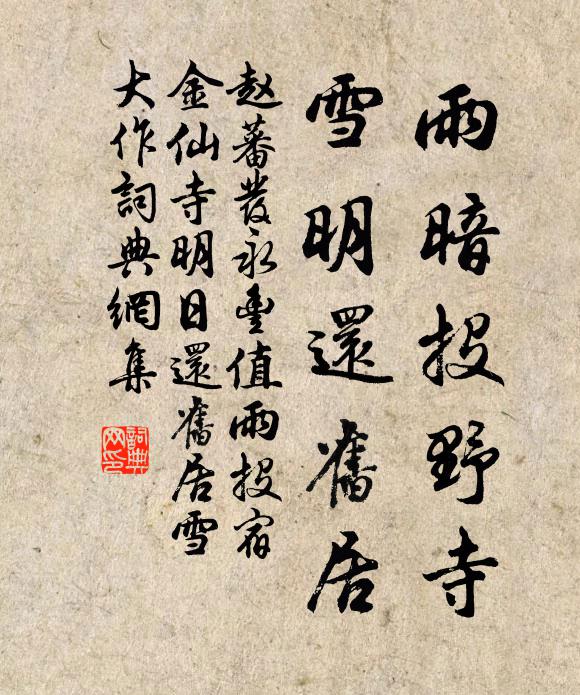 雨暗投野寺
雪明還舊居
赵蕃發永豐值雨投宿
金仙寺明日還舊居雪
大作詞典網集
詞典
网印